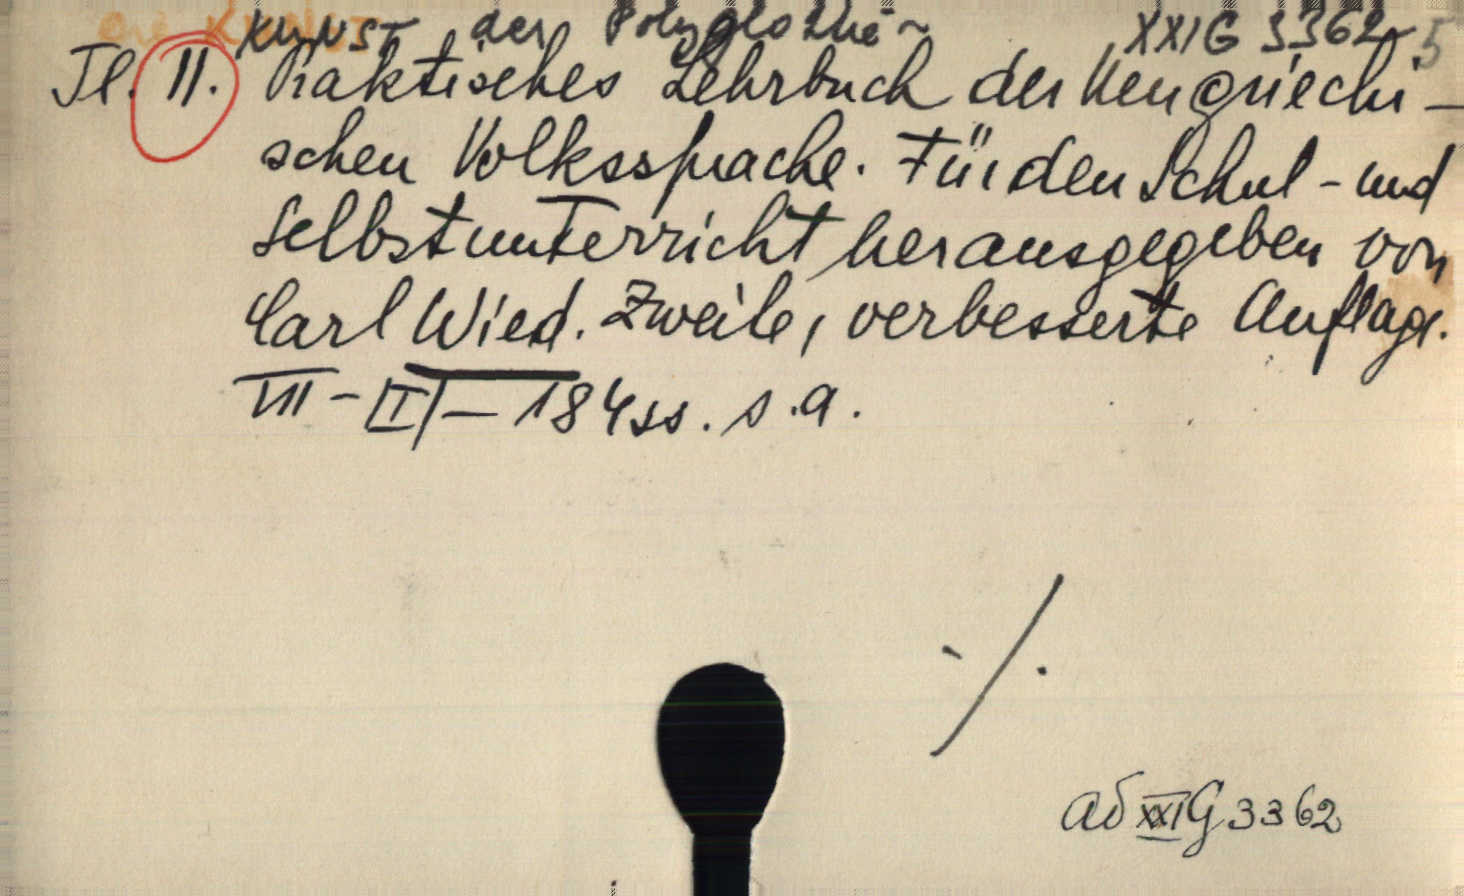 Die Kunst
Kunst der Polyglottie ~ XXIG 3362-5
Tl. II. Praktisches Lehrbuch der Neugriechi-
schen Volkssprache. Für den Schul- und
Selbstunterricht herausgegeben von
Carl Wied. Zweite, verbesserte Auflage.
VIII - [I] - 184 ss. s.a.
./.
ad XXIG 3362